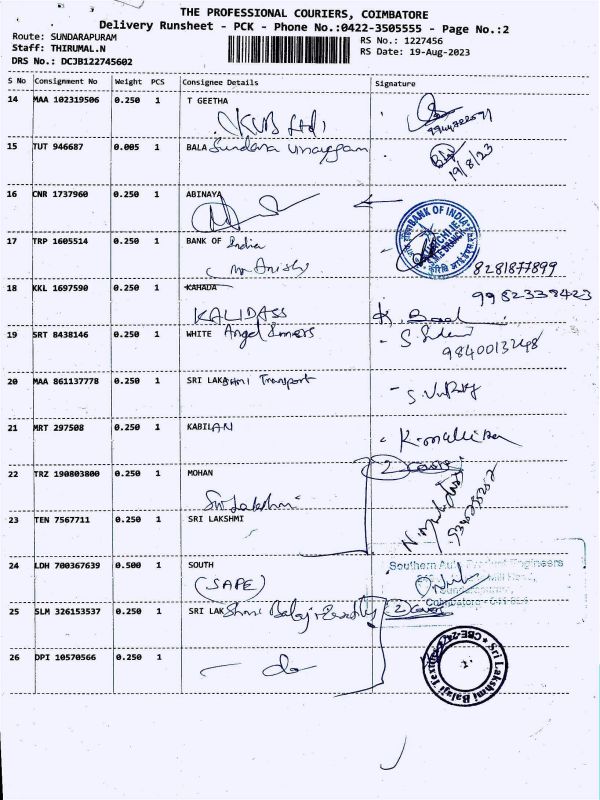 THE PROFESSIONAL COURIERS, COIMBATORE
Delivery Runsheet - PCK - Phone No.:0422-3505555 - Page No.:2
Route: SUNDARAPURAM
RS No.: 1227456
Staff: THIRUMAL.N
RS Date: 19-Aug-2023
DRS No.: DCJB122745602
S No Consignment No Weight PCS Consignee Details Signature
14 MAA 102319506 0.250 1 T GEETHA
KVB Ltd
15 TUT 946687 0.005 1 BALA Sundara Vinayagam
19/8/23
16 CNR 1737960 0.250 1 ABINAYA
BANK OF INDIA
17 TRP 1605514 0.250 1 BANK OF India
8281877899
18 KKL 1697590 0.250 1 KAHADA
9982338423
KALIDASS
19 SRT 8438146 0.250 1 WHITE Angel Inners
9840013248
20 MAA 861137778 0.250 1 SRI LAKSHMI Transport
21 MRT 297508 0.250 1 KABILAN
22 TRZ 190803800 0.250 1 MOHAN
2 Covers
Sri Lakshmi
23 TEN 7567711 0.250 1 SRI LAKSHMI
24 LDH 700367639 0.500 1 SOUTH
(SAPE)
Southern Auto Product Engineers
Coimbatore
25 SLM 326153537 0.250 1 SRI LAKShmi Balaji
2 Covers
26 DPI 10570566 0.250 1 — do —
Sri Lakshmi Balaji